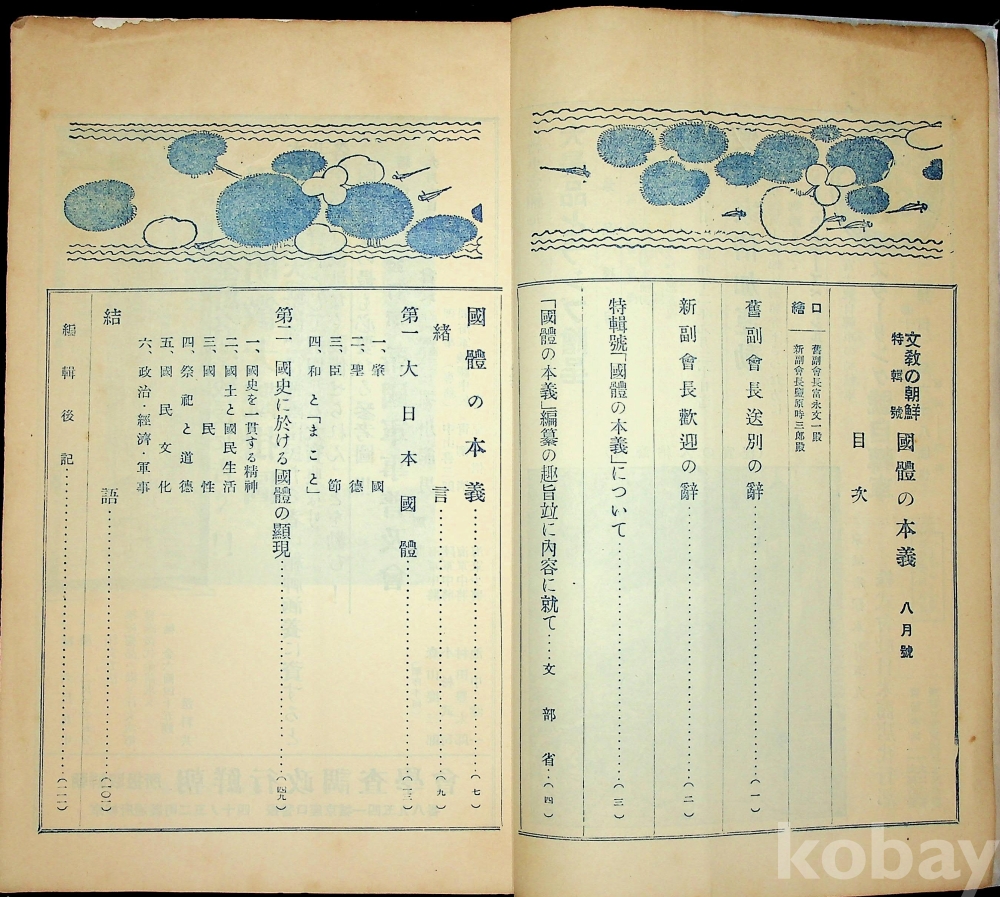 文教の朝鮮
特輯號
國體の本義
八月號
目次
口繪
舊副會長富永文一殿
新副會長鹽原時三郎殿
舊副會長送別の辭…(一)
新副會長歡迎の辭…(二)
特輯號「國體の本義」について…(三)
「國體の本義」編纂の趣旨竝に內容に就て…文部省…(四)
國體の本義…(七)
緖言…(九)
第一 大日本國體…(一三)
一、肇國
二、聖德
三、臣節
四、和と「まこと」
第二 國史に於ける國體の顯現…(四九)
一、國史を一貫する精神
二、國土と國民生活
三、國民性
四、祭祀と道德
五、國民文化
六、政治・經濟・軍事
結語
編輯後記
kobay